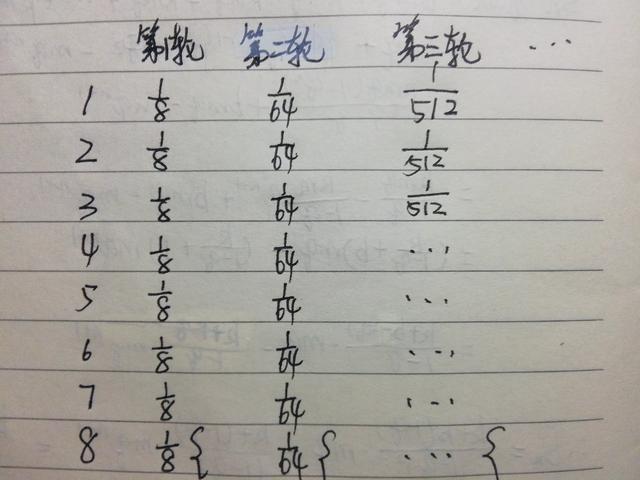 第1轮 第二轮 第三轮 ...
1 1/8 1/64 1/512
2 1/8 1/64 1/512
3 1/8 1/64 1/512
4 1/8 1/64 ...
5 1/8 1/64 ...
6 1/8 1/64 ...
7 1/8 1/64 ...
8 1/8 { 1/64 { ... {